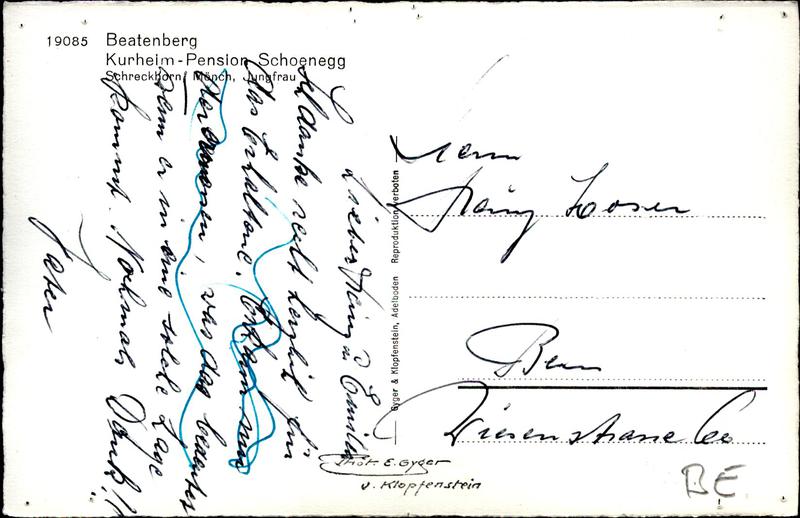 19085 Beatenberg
Kurheim-Pension Schoenegg
Schreckhorn, Mönch, Jungfrau
Lieber Heinz u. Emilie
Ich danke recht herzlich für
das Erhaltene.
was das bedeutet
wenn er in eine solche Lage
kommt. Nochmals Dank!!
Peter
Gyger & Klopfenstein, Adelboden Reproduktion verboten
Herrn
Heinz
Bern
Phot. E. Gyger
u. Klopfenstein
BE